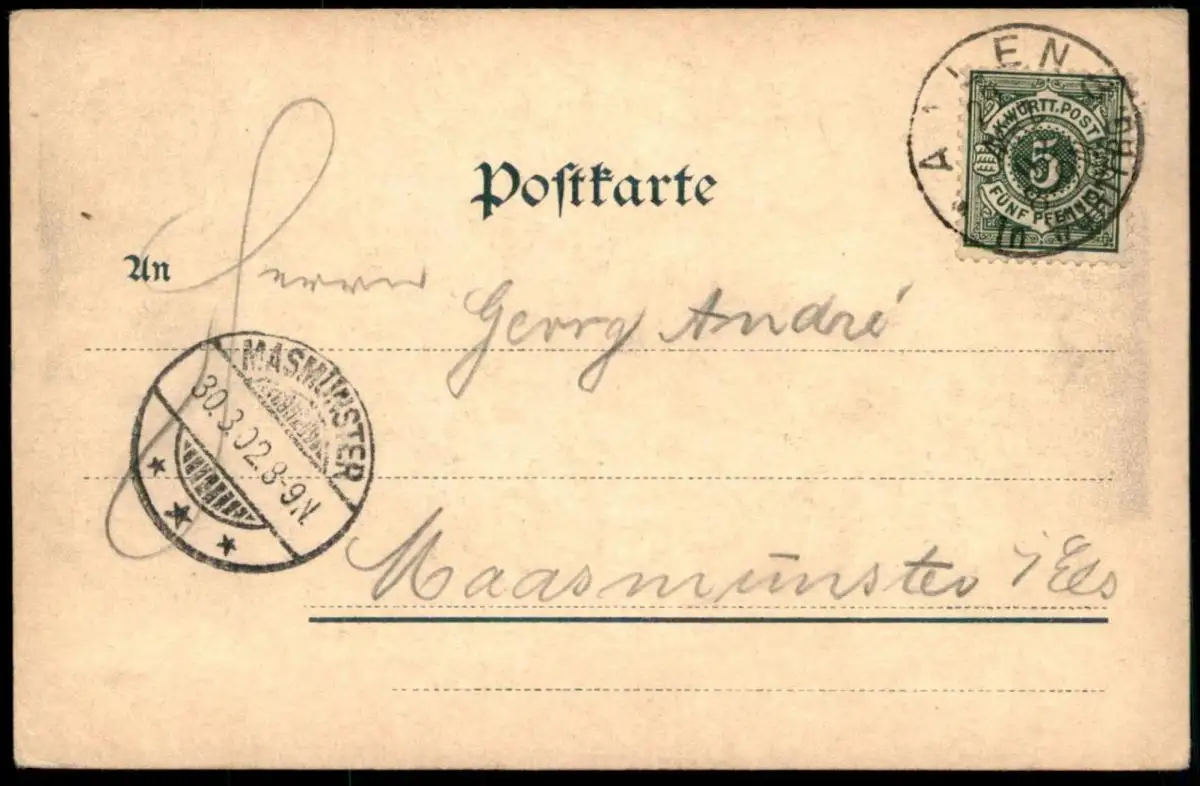 Postkarte
AALEN
K.WÜRTT.POST
5
FÜNF PFENNIG
An Herrn
Georg André
MASMÜNSTER
30.3.02.8-9N.
Maasmünster i/Els